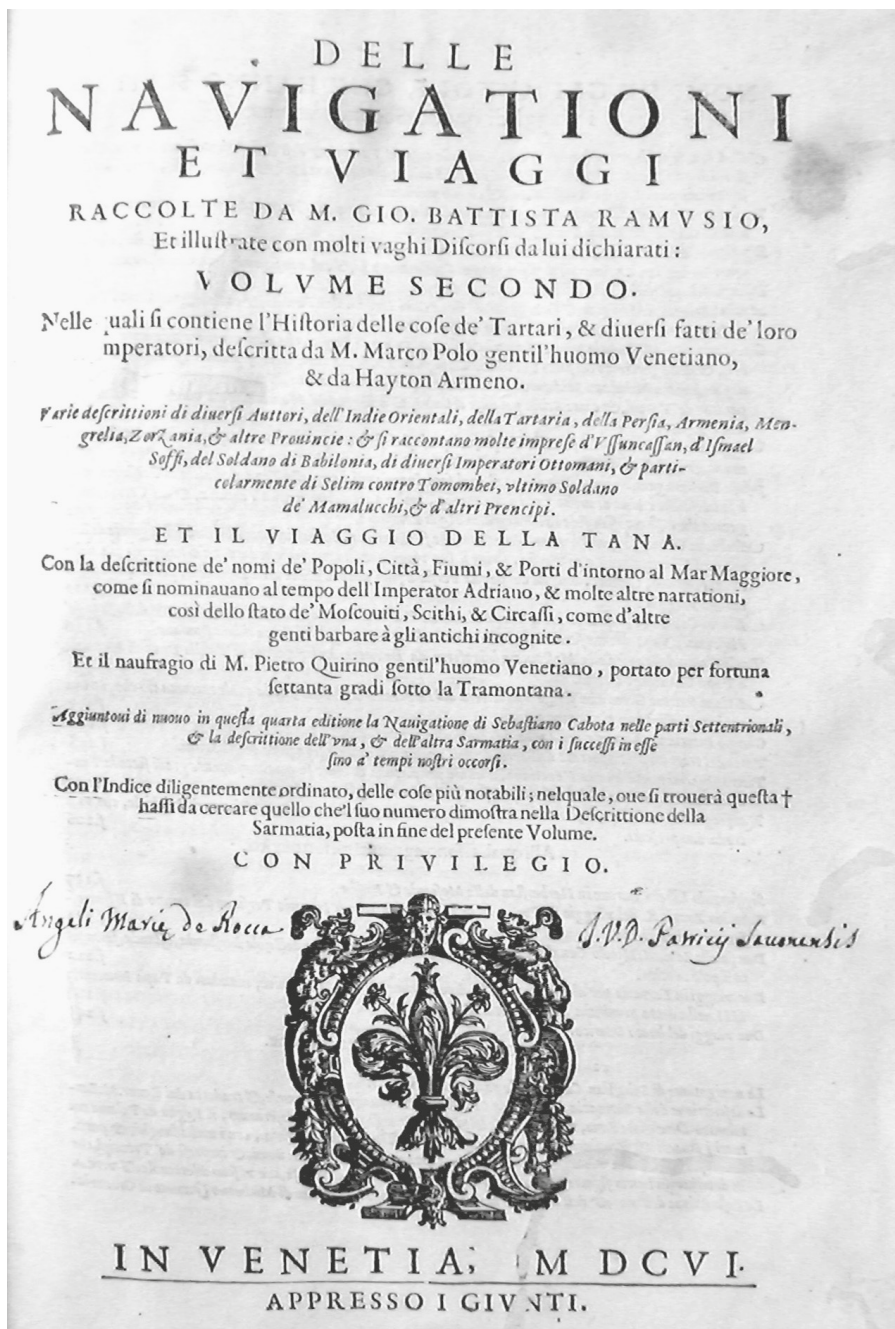 DELLE
NAVIGATIONI
ET VIAGGI
RACCOLTE DA M. GIO. BATTISTA RAMVSIO,
Et illuſtrate con molti vaghi Diſcorſi da lui dichiarati :
VOLVME SECONDO.
Nelle quali ſi contiene l'Hiſtoria delle coſe de' Tartari, & diuerſi fatti de' loro
mperatori, deſcritta da M. Marco Polo gentil'huomo Venetiano,
& da Hayton Armeno.
Varie deſcrittioni di diuerſi Auttori, dell'Indie Orientali, della Tartaria, della Perſia, Armenia, Men-
grelia, Zorzania, & altre Prouincie : & ſi raccontano molte impreſe d'Vſſuncaſſan, d'Iſmael
Soffi, del Soldano di Babilonia, di diuerſi Imperatori Ottomani, & parti-
colarmente di Selim contro Tomombei, vltimo Soldano
de' Mamalucchi, & d'altri Prencipi.
ET IL VIAGGIO DELLA TANA.
Con la deſcrittione de' nomi de' Popoli, Città, Fiumi, & Porti d'intorno al Mar Maggiore,
come ſi nominauano al tempo dell'Imperator Adriano, & molte altre narrationi,
così dello ſtato de' Moſcouiti, Scithi, & Circaſſi, come d'altre
genti barbare à gli antichi incognite.
Et il naufragio di M. Pietro Quirino gentil'huomo Venetiano, portato per fortuna
ſettanta gradi ſotto la Tramontana.
Aggiuntoui di nuouo in queſta quarta editione la Nauigatione di Sebaſtiano Cabota nelle parti Settentrionali,
& la deſcrittione dell'vna, & dell'altra Sarmatia, con i ſucceſſi in eſſe
ſino a' tempi noſtri occorſi.
Con l'Indice diligentemente ordinato, delle coſe più notabili; nelquale, oue ſi trouerà queſta †
haſſi da cercare quello che'l ſuo numero dimoſtra nella Deſcrittione della
Sarmatia, poſta in fine del preſente Volume.
CON PRIVILEGIO.
Angeli Mariæ de Rocca J.V.D. Patricij Sauonensis
IN VENETIA, M DCVI.
APPRESSO I GIVNTI.